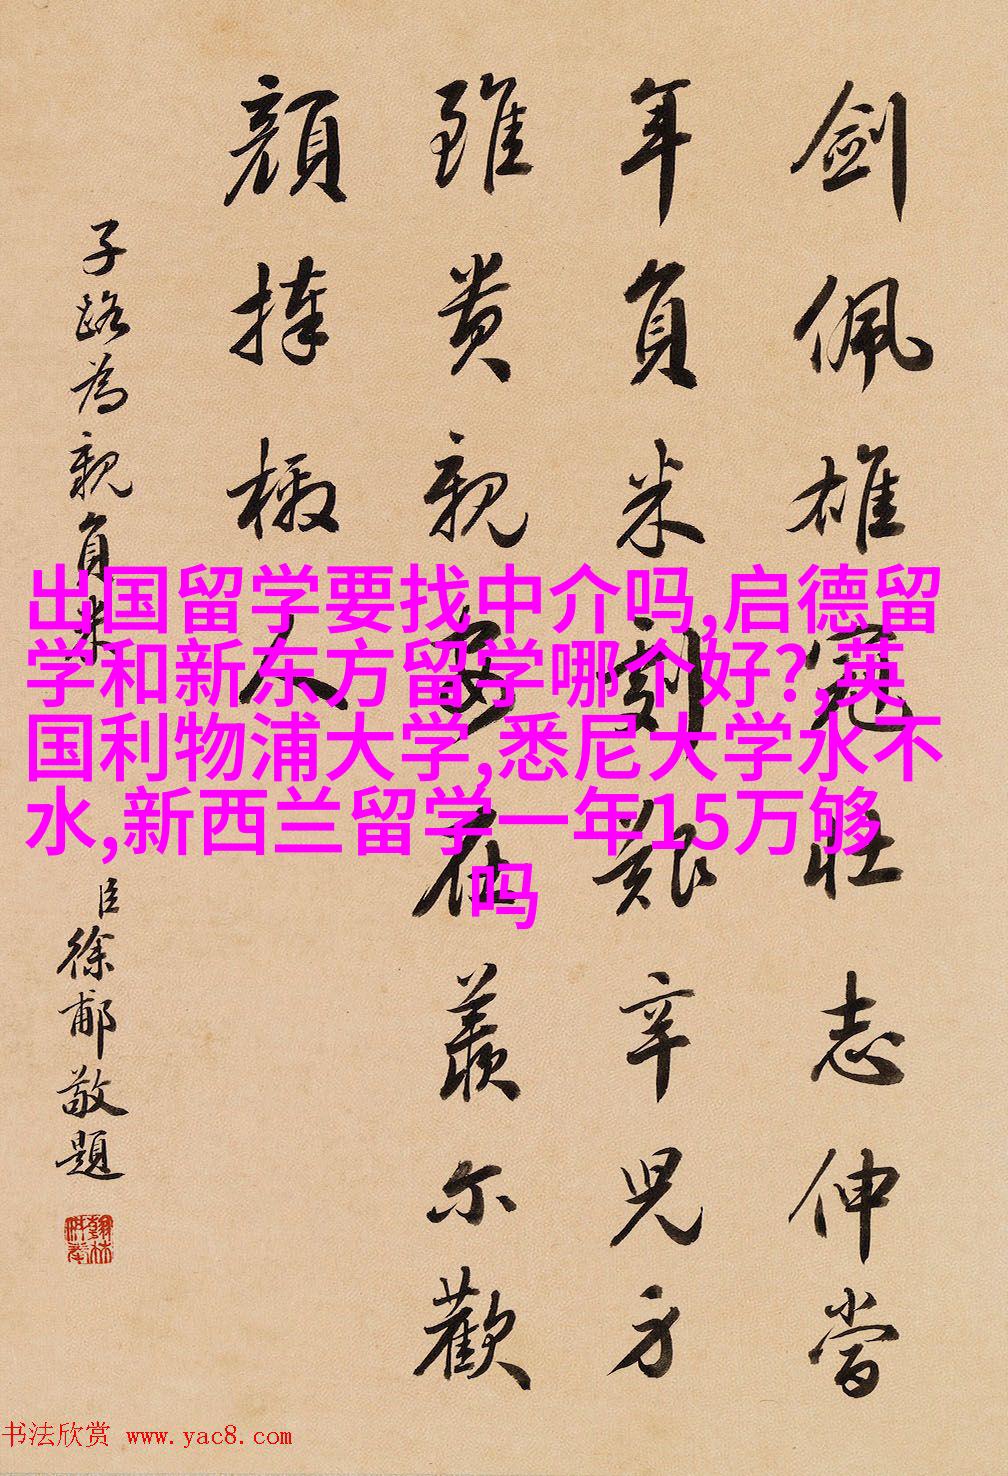 劍佩雄冠壯志伸當
年負米刻艱辛兒方
雖貴親安在羨尔歡
顏捧檄人
子路為親負米
臣徐郙敬題
出国留学要找中介吗,启德留
学和新东方留学哪个好?,英
国利物浦大学,悉尼大学水不
水,新西兰留学一年15万够
吗
书法欣赏 www.yac8.com